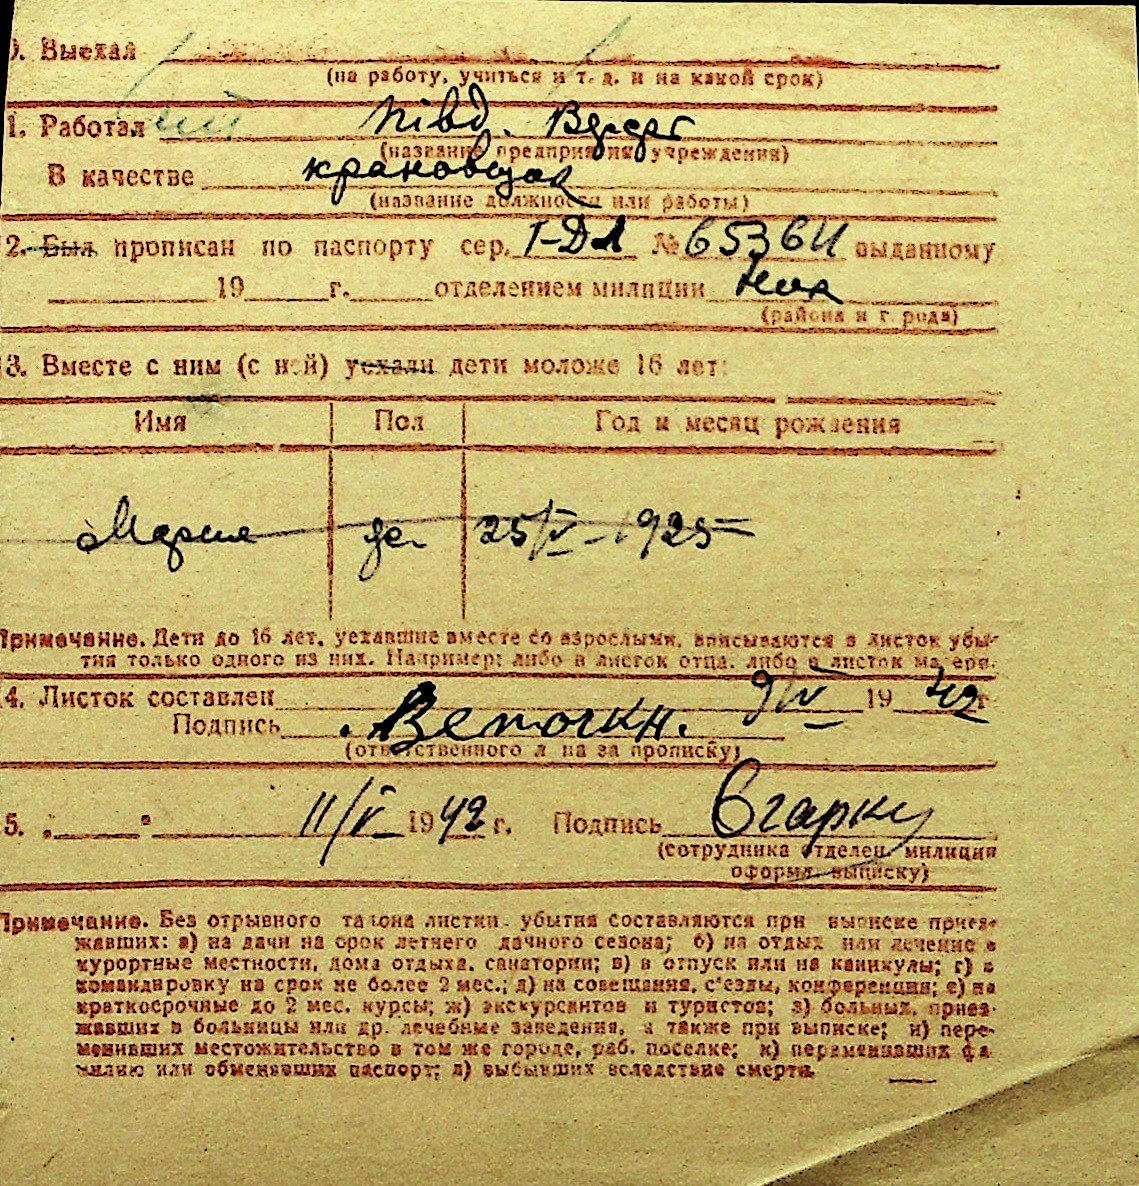 0. Выехал
(на работу, учиться и т. д. и на какой срок)
1. Работал півд.
(название предприятия учреждения)
В качестве крановщик
(название должности или работы)
2. Был прописан по паспорту сер. І-ДЛ № 653611 выданному
19 г. отделением милиции
(района и г рода)
3. Вместе с ним (с ней) уехали дети моложе 16 лет:
Имя Пол Год и месяц рождения
Мария 25/IV - 1925
Примечание. Дети до 16 лет, уехавшие вместе со взрослыми, вписываются в листок убы-
тия только одного из них. Например: либо в листок отца, либо в листок матери.
4. Листок составлен 9/IV 19 42 г
Подпись
(ответственного лица за прописку)
5. " " 11/V 1942 г. Подпись
(сотрудника отделен. милиции
оформл. выписку)
Примечание. Без отрывного талона листки убытия составляются при выписке приез-
жавших: а) на дачи на срок летнего дачного сезона; б) на отдых или лечение в
курортные местности, дома отдыха, санатории; в) в отпуск или на каникулы; г) в
командировку на срок не более 2 мес.; д) на совещания, с'езды, конференции; е) на
краткосрочные до 2 мес. курсы; ж) экскурсантов и туристов; з) больных, приез-
жавших в больницы или др. лечебные заведения, а также при выписке; и) пере-
менивших местожительство в том же городе, раб. поселке; к) переменивших фа-
милию или обменявших паспорт; л) выбывших вследствие смерти.